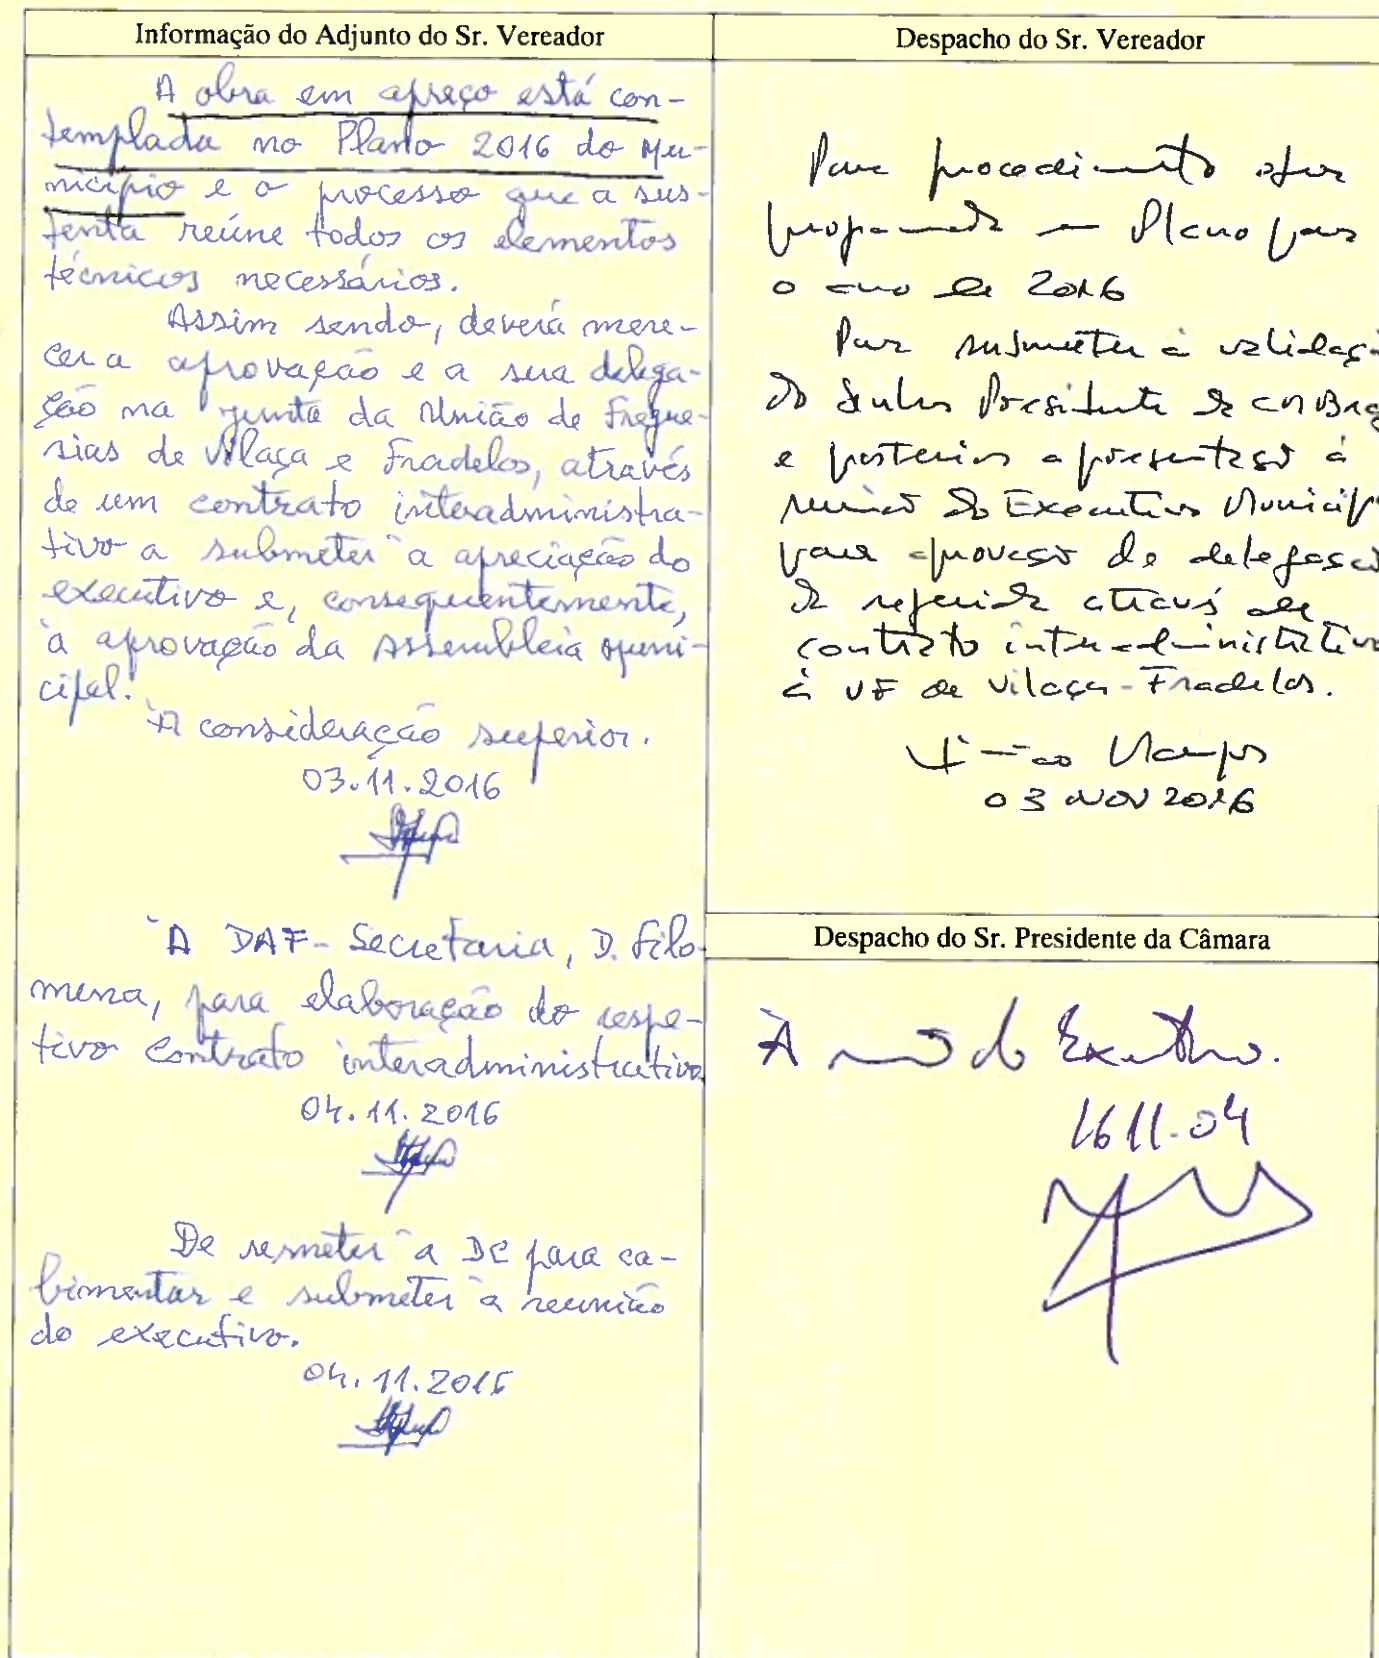 Informação do Adjunto do Sr. Vereador
A obra em apreço está con-
templada no Plano 2016 do Mu-
nicípio e o processo que a sus-
tenta reúne todos os elementos
técnicos necessários.
Assim sendo, deverá mere-
cer a aprovação e a sua delega-
ção na Junta da União de Fregue-
sias de Vilaça e Fradelos, através
de um contrato interadministra-
tivo a submeter à apreciação do
executivo e, consequentemente,
à aprovação da Assembleia Muni-
cipal.
À consideração superior.
03.11.2016
À DAF - Secretaria, D. Filo-
mena, para elaboração do respe-
tivo contrato interadministrativo
04.11.2016
De remeter à DC para ca-
bimentar e submeter à reunião
do executivo.
04.11.2016
Despacho do Sr. Vereador
Para procedimento
Plano para
o ano de 2016
Para submeter à validaçã
do Senhor Presidente da CM Brag
e posterior apresentação à
reunião do Executivo Municip
para aprovação da delegação
da referida através de
contrato interadministrativo
à UF de Vilaça - Fradelos.
03 NOV 2016
Despacho do Sr. Presidente da Câmara
À do Executivo.
1611.04